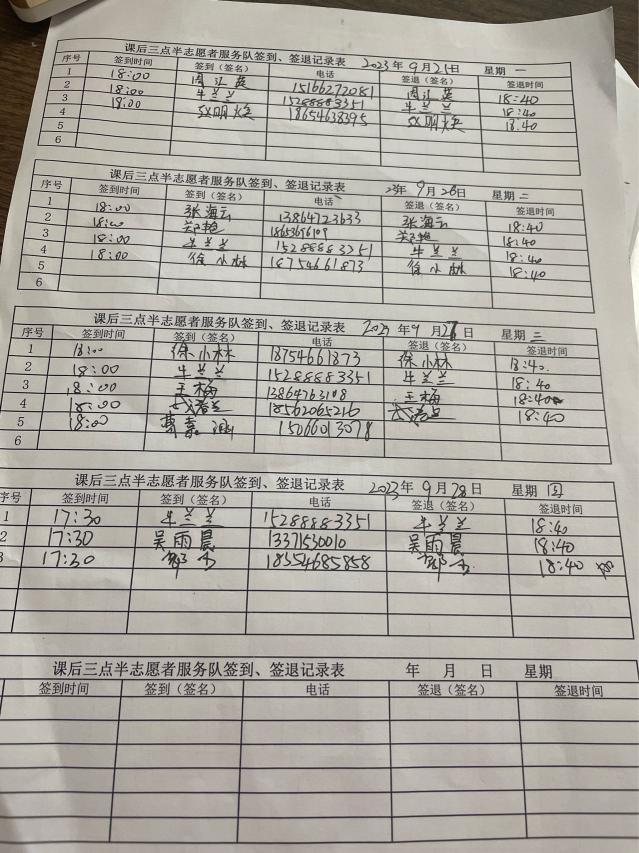 课后三点半志愿者服务队签到、签退记录表 2023年9月25日 星期 一
序号 签到时间 签到（签名） 电话 签退（签名） 签退时间
1 18:00 15166272081 18:40
2 18:00 牛兰兰 15288883351 牛兰兰 18:40
3 18:00 赵明焕 18654638395 赵明焕 18:40
4
5
6
课后三点半志愿者服务队签到、签退记录表 23年9月26日 星期 二
序号 签到时间 签到（签名） 电话 签退（签名） 签退时间
1 18:00 张海云 13864723633 张海云 18:40
2 18:00 郑艳 郑艳 18:40
3 18:00 牛兰兰 15288883351 牛兰兰 18:40
4 18:00 徐小林 18754661873 徐小林 18:40
5
6
课后三点半志愿者服务队签到、签退记录表 2023年9月 日 星期 三
序号 签到时间 签到（签名） 电话 签退（签名） 签退时间
1 18:00 徐小林 18754661873 徐小林 18:40
2 18:00 牛兰兰 15288883351 牛兰兰 18:40
3 18:00 王梅 13864763108 王梅 18:40
4 18:00 18562065216 18:40
5 18:00 15066013078
6
课后三点半志愿者服务队签到、签退记录表 2023年9月28日 星期 四
序号 签到时间 签到（签名） 电话 签退（签名） 签退时间
1 17:30 牛兰兰 15288883351 牛兰兰 18:40
2 17:30 吴雨晨 13371530010 吴雨晨 18:40
3 17:30 18554685858 18:40
课后三点半志愿者服务队签到、签退记录表 年 月 日 星期
签到时间 签到（签名） 电话 签退（签名） 签退时间